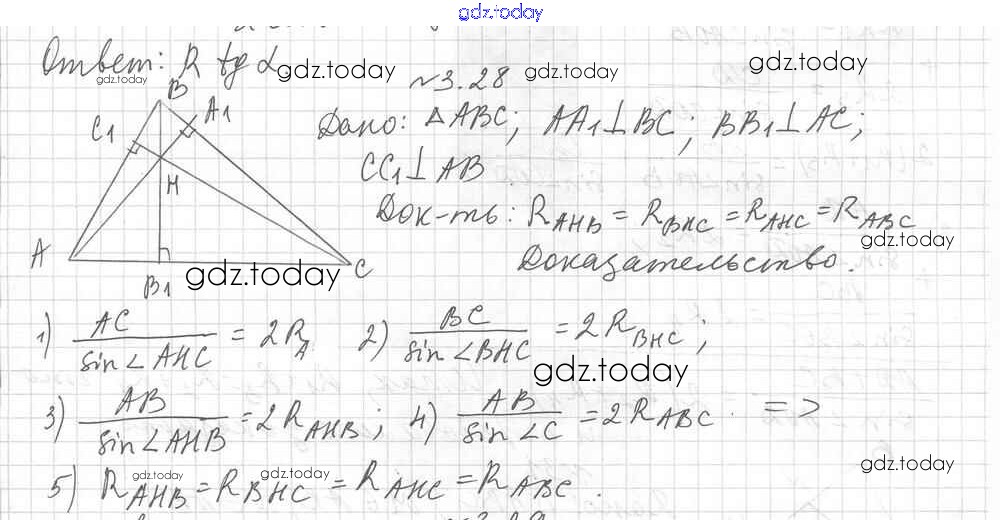 gdz.today
Ответ: R tg α gdz.today gdz.today gdz.today
gdz.today
№3.28
B
C₁ A₁
Дано: △ABC; AA₁⊥BC; BB₁⊥AC;
CC₁⊥AB
H
Док-ть: R_AHB = R_BHC = R_AHC = R_ABC
gdz.today
A
C
B₁
gdz.today
Доказательство.
1) AC / sin∠AHC = 2R_A 2) BC / sin∠BHC = 2R_BHC;
gdz.today
3) AB / sin∠AHB = 2R_AHB; 4) AB / sin∠C = 2R_ABC. =>
gdz.today gdz.today gdz.today
5) R_AHB = R_BHC = R_AHC = R_ABC.